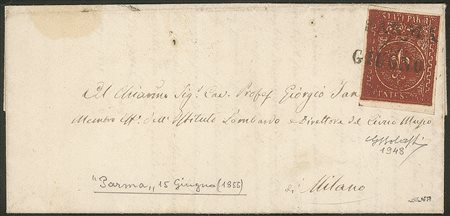 STATI PARM
GIUGNO
CENTES
Al Chiarmo Sigr Cav. Profes. Giorgio Jan
Membro Eff. dell'Istituto Lombardo e Direttore del Civico Museo
1948
"Parma„ 15 Giugno (1855)
di Milano